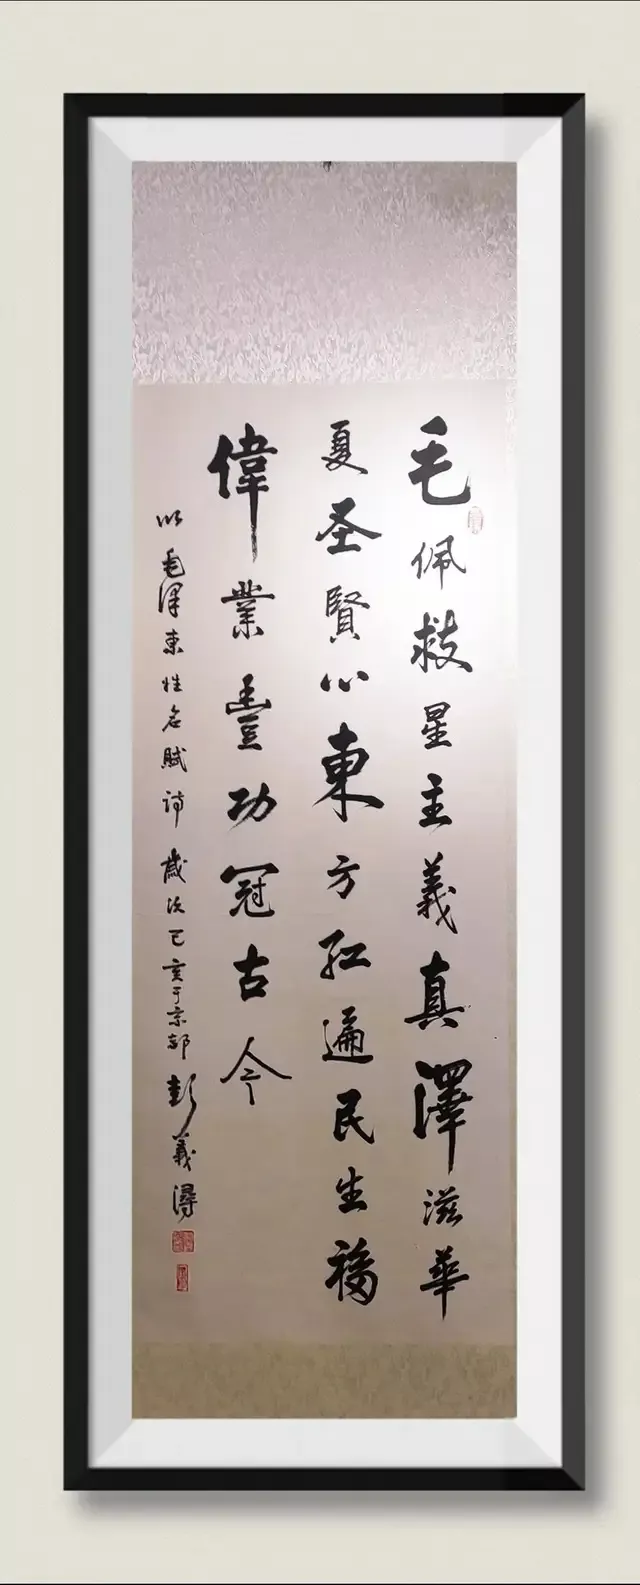 毛佩救星主義真澤滋華
夏圣賢心東方红遍民生福
偉業豊功冠古今
以毛澤東性名賦詩歲次己亥于京都彭義潯